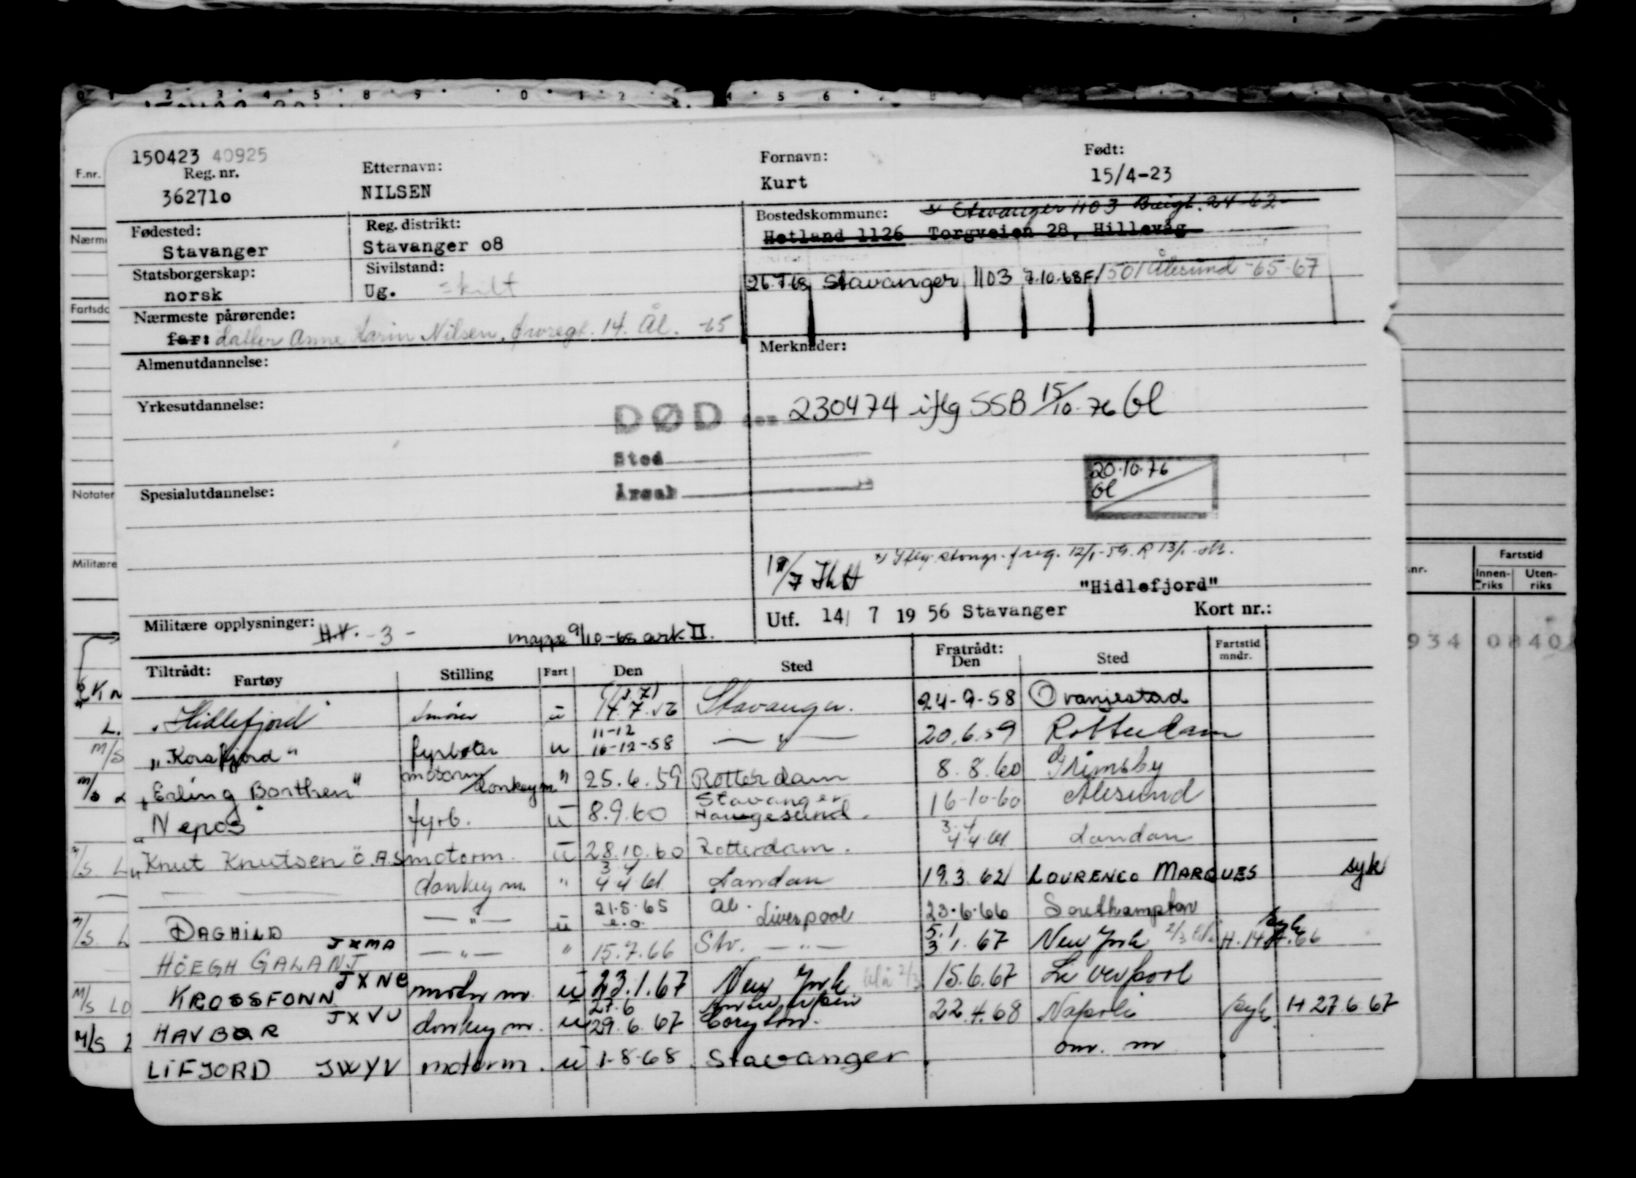 150423 40925
Reg. nr.
362710
Etternavn:
NILSEN
Fornavn:
Kurt
Født:
15/4-23
Fødested:
Stavanger
Reg. distrikt:
Stavanger 08
Bostedskommune:
Stavanger 1103
Hetland 1126 Torgveien 28, Hillevåg
Statsborgerskap:
norsk
Sivilstand:
Ug. skilt
26.7.68 Stavanger 1103 7.10.68 F/ 1501 Ålesund -65-67
Nærmeste pårørende:
far: datter Anne Karin Nilsen, 14. Ål. -65
Almenutdannelse:
Merknader:
Yrkesutdannelse:
DØD den 230474 iflg SSB 15/10-76 Gl
Sted
Årsak
20.10.76
Gl
Spesialutdannelse:
"Hidlefjord"
Utf. 14/ 7 19 56 Stavanger
Kort nr.:
Militære opplysninger: H.V. -3-
mappe 9/10-68 ark II.
Tiltrådt:
Fartøy
Stilling
Fart
Den
Sted
Fratrådt:
Den
Sted
Fartstid
mndr.
"Hidlefjord" smører u 14.7.56 Stavanger. 24-9-58 Oranjestad
11-12
"Korsfjord" fyrbøter u 16-12-58 — " — 20.6.59 Rotterdam
"Erling Borthen" motorm/donkeym " 25.6.59 Rotterdam 8.8.60 Grimsby
"Nepos" fyrb. u 8.9.60 Stavanger Haugesund. 16-10-60 Ålesund
"Knut Knutsen O.A.S motorm. u 28.10.60 Rotterdam. 3.4 4.4.61 London
— — donkeym. " 3.4 4.4.61 London 19.3.62 LOURENCO MARQUES syk
DAGHILD — " — u 21.5.65 Ål. Liverpool 23.6.66 Southampton
HÖEGH GALANT JXMA — " — " 15.7.66 Stv. — " — 5.1 3.1.67 New York
KROSSFONN JXNC motorm. u 23.1.67 New York 15.6.67 Liverpool
HAVBØR JXVU donkeym. u 27.6 29.6.67 Antwerpen Coryton. 22.4.68 Napoli syk H 27.6.67
LIFJORD JWYV motorm. u 1-8-68 Stavanger om. m
F.nr.
Notater
Militære
Fartstid
Innenriks
Utenriks
934 0840